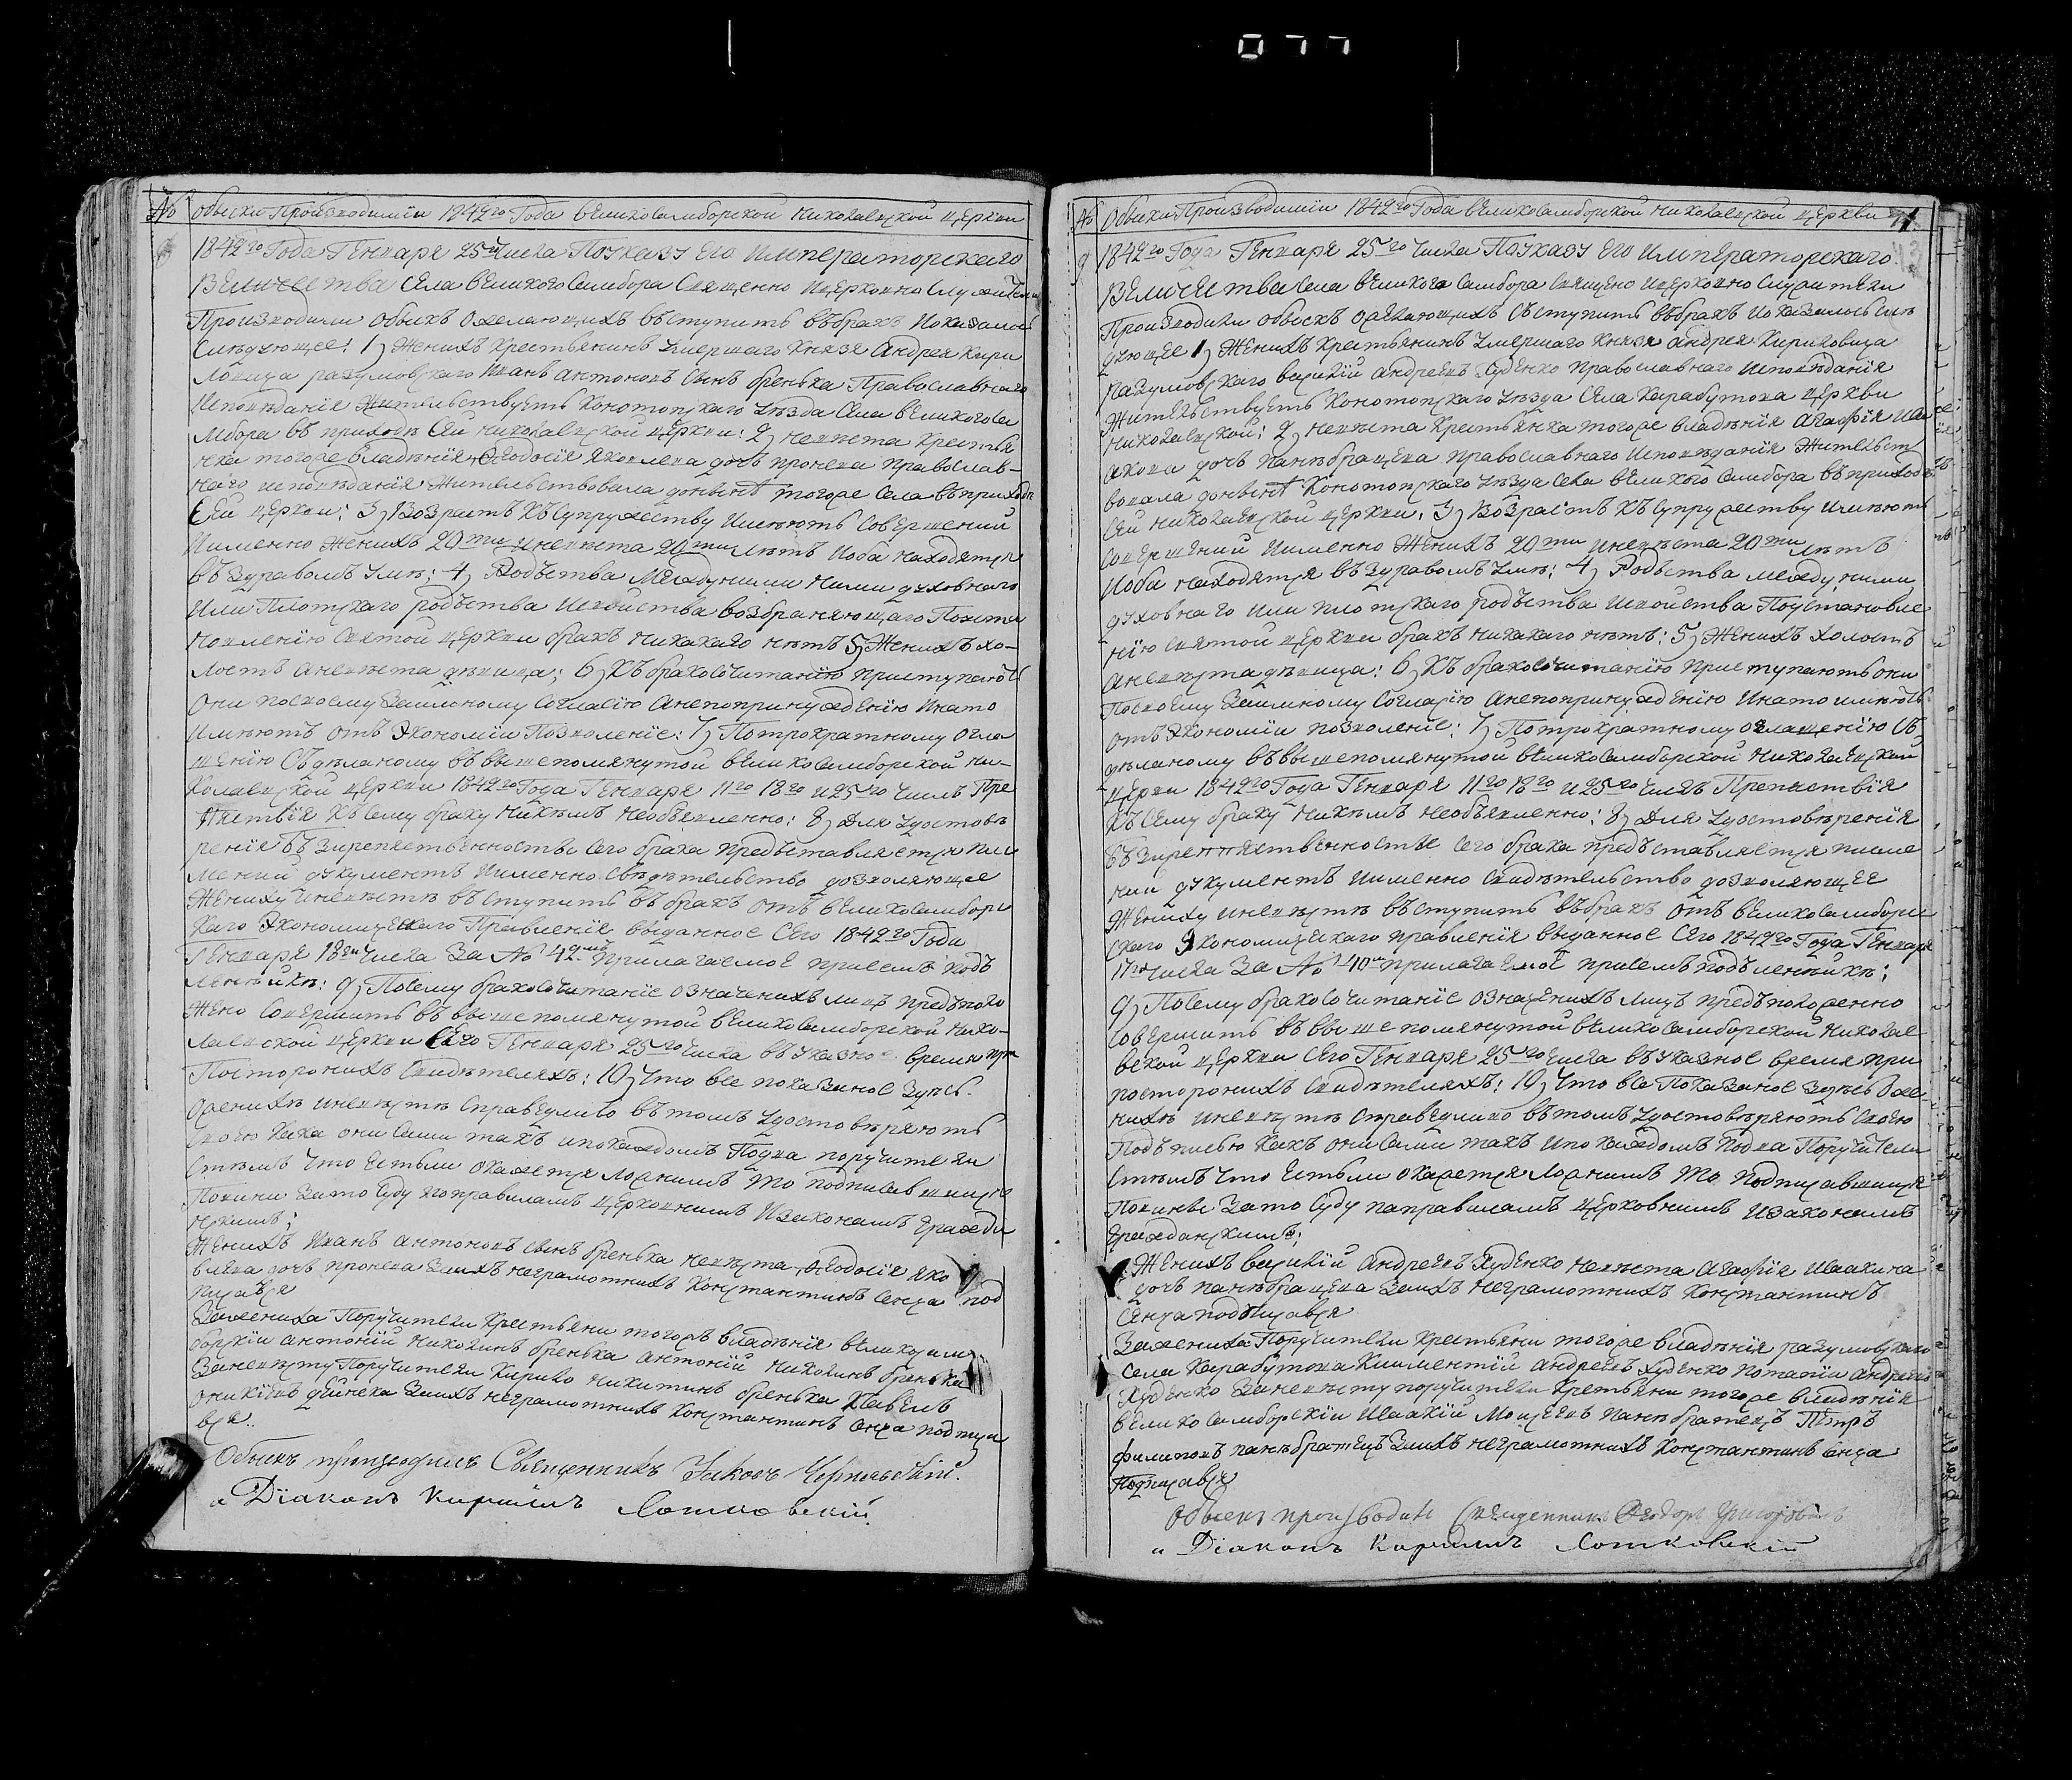 077
№ Обыски Произходимїи 1842го Года вЕликоСамборской НиколаЕвской цЕркви
1842го Года ГЕнваря 25го Числа ПоУказу Его ИмпЕраторскаго
ВЕличЕства Села вЕликого Самбора СвященноИцЕрковноСлужитЕли
Произходили Обыскъ Ожелающихъ въступить въбракъ Иоказалось
Слѣдующее: 1) Женихъ Крестьянинъ Умершаго Князя Андрея Кири
Ловича разумовскаго Иванъ антоновъ Сынъ бренька Православнаго
Исповѣданїя ЖитЕльствуЕтъ Конотопскаго Уѣзда Села вЕликогоСа
мбора въ приходѣ СЕй НиколаЕвской цЕркви: 2) Невѣста Крестья
нка тогоже владѣнїя Ѳеодосїя Яковлева дочъ пронева православ-
наго исповѣданїя Жительствовала донынѣ тогоже Села въприходѣ
СЕй цЕркви: 3) Возрастъ Къ Супружеству Имѣютъ СовЕршений
Именно Женихъ 20ти Иневѣста 20ти лѣтъ Иоба находятся
въ здравомъ Умѣ: 4) Родъства Междуними Ними духовнаго
Или Плотскаго родъства Исвойства возбраняющаго Поуста
новленїю Святой цЕркви бракъ Никакаго нѣтъ 5) Женихъ хо-
лостъ аневѣста дѣвица: 6) Къ бракосочитанїю приступаютъ
Они посвоему Взаимному Согласїю Анепопринуждѣнїю Инато
Имѣютъ отъ Экономїи Позволенїе: 7) Потрократному Огла
шЕнїю Съдѣланому въ вышепомянутой вЕликоСамборской Ни-
КолаЕвской цЕркви 1842го Года ГЕнваря 11го 18го и 25го Числъ Пре
пятствїя Къ сему браку Никѣмъ Необъявленно: 8) Для Удостовѣ
ренїя БЪзпрепятственностьи Сего брака Предъставляется пис
мений документъ Именно Свидѣтельство дозволяющее
Жениху Иневѣстѣ въступить въ бракъ отъ вЕликоСамборс
Каго ЭкономичЕскаго Правленїя выданное Сего 1842го Года
ГЕнваря 18го Числа За № 42мъ Прилагаемое приЕемъ подъ
линныкѣ: 9) Посему бракосочитанїе означенихъ лицъ Предъполо
жено СовЕршить въ вышепомянутой вЕликоСамборской Нико-
лаЕвской цЕркви Сего ГЕнваря 25го Числа въ Указное время при
Посторонихъ Свидѣтеляхъ: 10) Что все показаное Здѣсь
Ожениxѣ иневѣстѣ Справедливо въ томъ Удостовѣряютъ
Своею Кака они Сами такъ ипокаждомъ Подна поручители
Стѣмъ Что Естьли окажется Ложнимъ То подписавшиися
Повини Зато Суду поправиламъ цЕрковнимъ Изаконамъ Гражда
нскимъ;
Женихъ Иванъ антоновъ Сынъ бренька невѣста Ѳеодосїя яко
влева дочъ пронева Заихъ неграмотнихъ Константинъ Сенча под
писався
Зажениха Поручители Крестьяни тогожъ владѣнїя великосам
борскїи антонїй Николинъ бренька антонїй Николинъ бренька
Заневѣсту Поручители Кирило никитинъ бренька Павелъ
Оникїевъ дейнека Заихъ неграмотнихъ Константинъ Сенча подписа
вся.
Обыскъ произходилъ Священникъ Іаковъ Чернявскїй.
и Дїаконъ Кириллъ Лотковскїй

№ Обыски Производимїи 1842го Года вЕликоСамборской НиколаЕвской цЕркви
9 1842го Года ГЕнваря 25го Числа ПоУказу Его ИмпЕраторскаго
ВЕличЕства Села вЕликого Самбора Священо ИцЕрковно Служители
Произходили обыскъ Ожелающихъ въступить въбракъ Иоказалось Слѣ
дующее 1) Женихъ Крестьянинъ Умершаго Князя андрея Кириловича
Разумовскаго василїй андреевъ Худенко православнаго Исповѣданїя
ЖитЕльствуЕтъ Конотопскаго Уѣзда Села Карабутова цЕркви
НиколаЕвской: 2) Невѣста Крестьянка тогоже владѣнїя Агафїя Иса
акова дочъ панѣбращева православнаго Исповѣданїя Жительст
вовала донынѣ Конотопскаго Уѣзда Села вЕликого Самбора въприходѣ
Сей НиколаЕвской цЕркви: 3) Возрастъ Къ Супружеству Имѣютъ
СовЕршений Именно Женихъ 20ти Иневѣста 20ти лѣтъ
Иоба находятся въ здравомъ Умѣ: 4) Родьства между ними
духовнаго или плотскаго родъства Исвойства Поустановле
нїю Святой цЕркви бракъ Никакаго нѣтъ: 5) Женихъ холостъ
Аневѣста дѣвица: 6) Къ бракосочитанїю приступаютъ они
Посвоему Взаимному Согласїю анепопринуждЕнїю Инато имѣютъ
отъ Экономїи позволенїе: 7) Потрократному оглашенїю Съ
дѣланому въ вышепомянутой вЕликоСамборской НиколаЕвской
цЕркви 1842го Года ГЕнваря 11го 18го и 25го Числъ Препятствїя
Къ Сему браку Никѣмъ Необъявленно: 8) Для Удостовѣренїя
бЪзпрепятственностьи Сего брака предъставляется писме
ний документъ Именно Свидѣтельство дозволяющеЕ
Жениху иневѣстѣ въступить въбракъ отъ вЕликоСамборс
скаго Экономическаго правленїя выданное Сего 1842го Года ГЕнваря
17го Числа За № 40мъ прилагаЕмоЕ приЕемъ подълинныкѣ;
9) Посему бракосочитанїе означЕнихъ лицъ предъположенно
СовЕршить въ вышепомянутой вЕликоСамборской Николае-
вской цЕркви Сего ГЕнваря 25го Числа въ Указное время при
посторонихъ Свидѣтеляхъ: 10) Что все Показаное Здѣсь Оже
нихѣ иневѣстѣ Справедливо въ томъ Удостовѣряютъ Своею
Подъписью Какъ они Сами такъ ипо каждомъ Подна Поручители
Стѣмъ Что Естьли окажется Ложнимъ То Подписавшиися
Повины Зато Суду поправиламъ цЕрковнимъ Изаконамъ
Гражданскимъ;
Женихъ василїй андреевъ Худенко невѣста Агафїя Исаакина
дочъ панѣбращева Заихъ неграмотнихъ Константинъ
Сенча подписався
Зажениха Поручители Крестьяни тогоже владѣнїя разумовскаго
Села Карабутова Климентїй андреевъ Худенко Потапїй андреевъ
Худенко Заневѣсту поручители Крестьяни тогоже владѣнїя
вЕликоСамборскїи Исаакїй Моисеевъ панѣбратецъ Петръ
филиповъ панѣбратецъ Заихъ неграмотнихъ Константинъ Сенча
Подписався
Обыскъ производилъ Священникъ Ѳеодоръ Григоровичъ
и Дїаконъ Кириллъ Лотковскїй